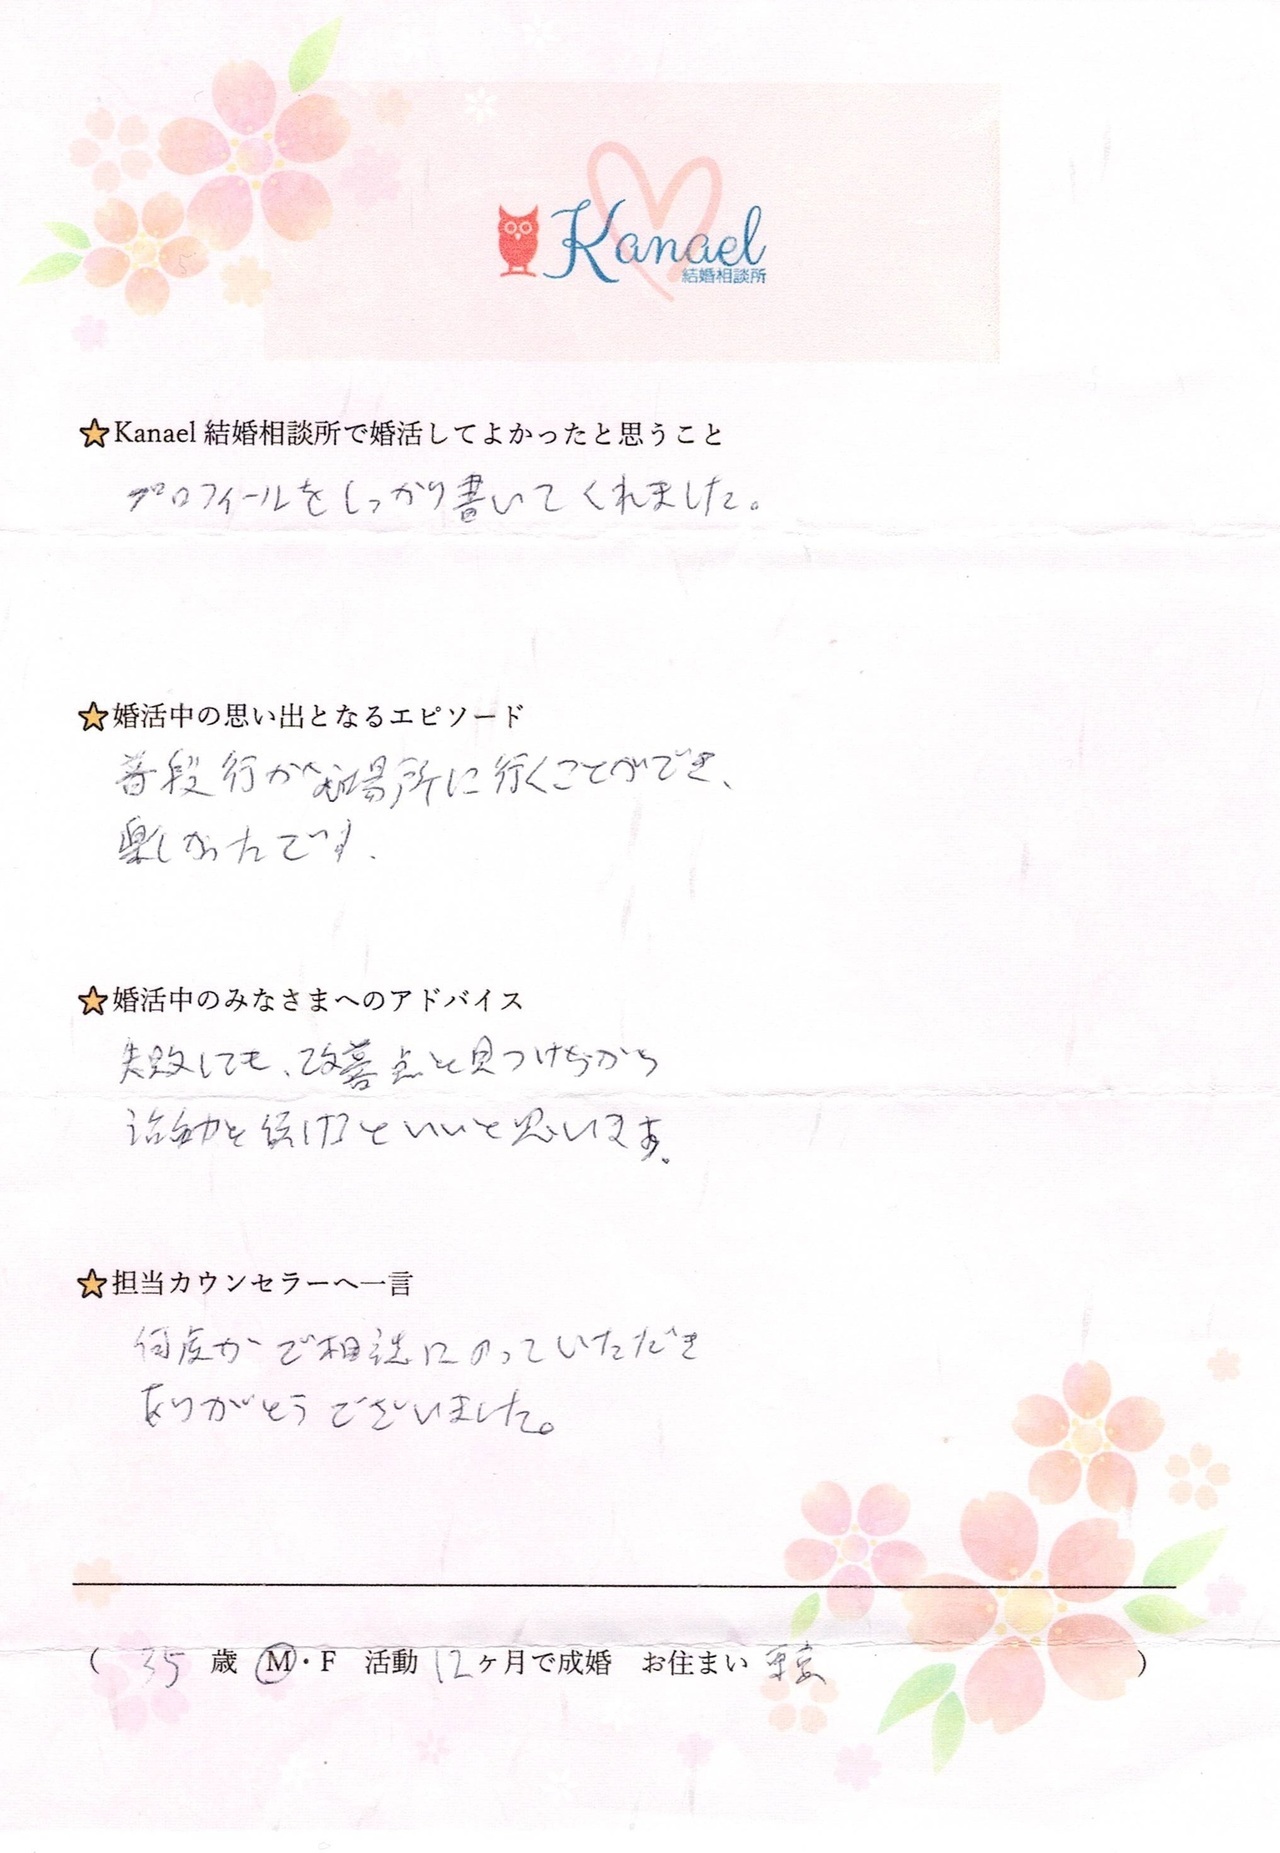 Kanael
結婚相談所
Kanael 結婚相談所で婚活してよかったと思うこと
プロフィールをしっかり書いてくれました。
婚活中の思い出となるエピソード
普段行かない場所に行くことができ、
楽しかったです.
婚活中のみなさまへのアドバイス
失敗しても、改善点を見つけながら
活動を続けるといいと思います。
担当カウンセラーへ一言
何度かご相談にのっていただき
ありがとうございました。
( 35 歳 M・F 活動 12ヶ月で成婚 お住まい 東京 )